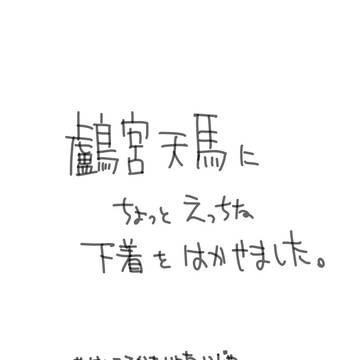 鸕宮天馬に
ちょっと えっちな
下着を はかせました。